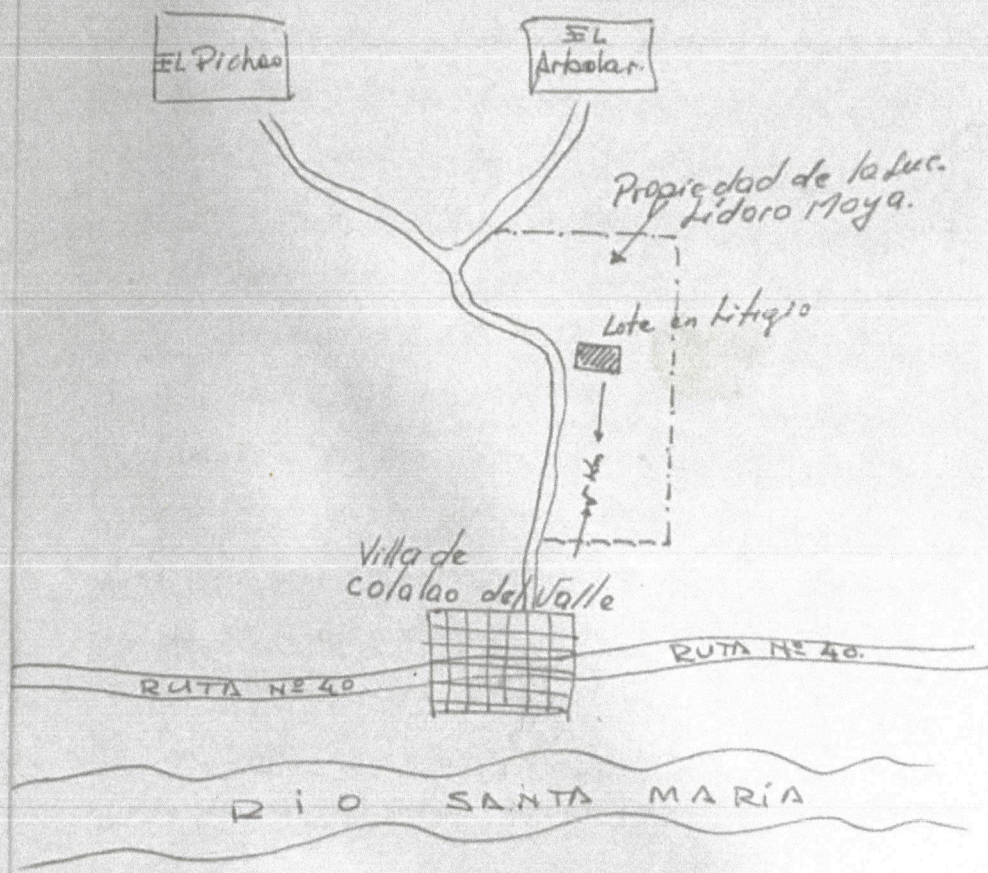 EL Pichao
EL
Arbolar.
Propiedad de la Suc.
Lidoro Moya.
Lote en Litigio
Km
Villa de
Colalao del Valle
RUTA Nº 40
RUTA Nº 40.
RIO SANTA MARÍA